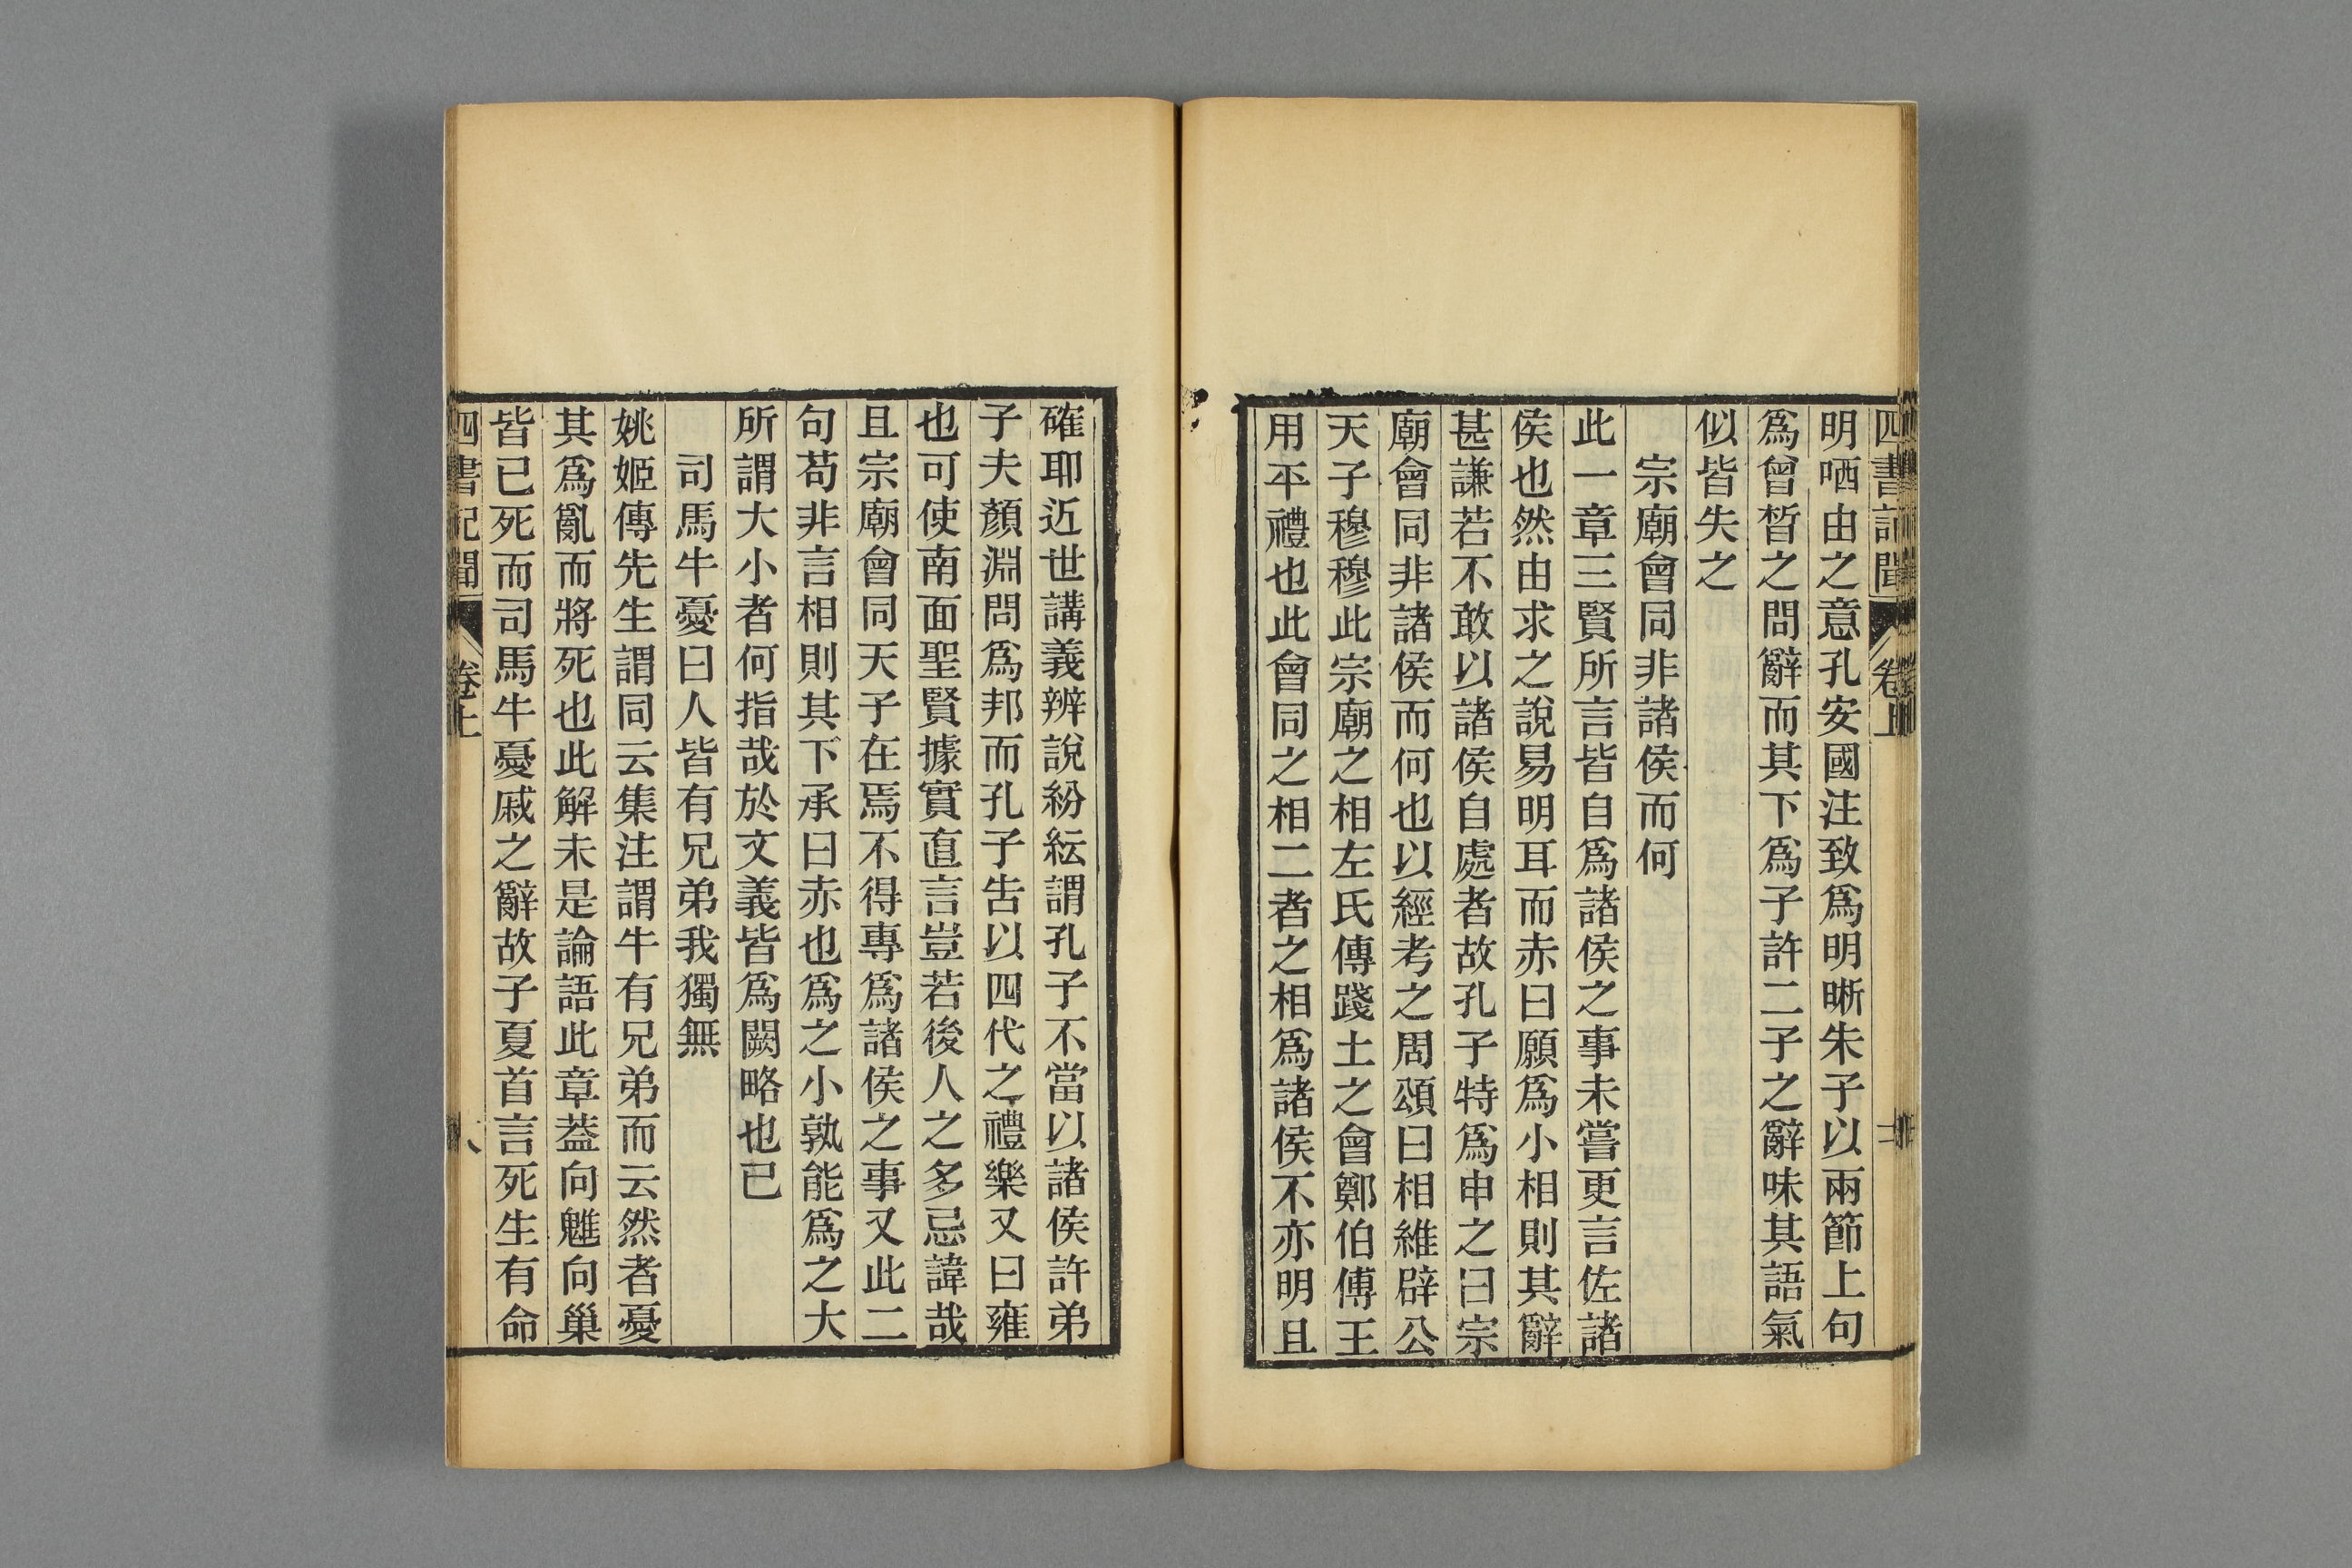 四書記聞 卷上
明哂由之意孔安國注致爲明晰朱子以兩節上句
爲曾晳之問辭而其下爲子許二子之辭味其語氣
似皆失之
宗廟會同非諸侯而何
此一章三賢所言皆自爲諸侯之事未嘗更言佐諸
侯也然由求之說易明耳而赤曰願爲小相則其辭
甚謙若不敢以諸侯自處者故孔子特爲申之曰宗
廟會同非諸侯而何也以經考之周頌曰相維辟公
天子穆穆此宗廟之相左氏傳踐土之會鄭伯傅王
用平禮也此會同之相二者之相爲諸侯不亦明且
確耶近世講義辨說紛紜謂孔子不當以諸侯許弟
子夫顏淵問爲邦而孔子告以四代之禮樂又曰雍
也可使南面聖賢據實直言豈若後人之多忌諱哉
且宗廟會同天子在焉不得專爲諸侯之事又此二
句苟非言相則其下承曰赤也爲之小孰能爲之大
所謂大小者何指哉於文義皆爲闕略也已
司馬牛憂曰人皆有兄弟我獨無
姚姬傳先生謂同云集注謂牛有兄弟而云然者憂
其爲亂而將死也此解未是論語此章葢向魋向巢
皆已死而司馬牛憂戚之辭故子夏首言死生有命
四書記聞 卷上 八